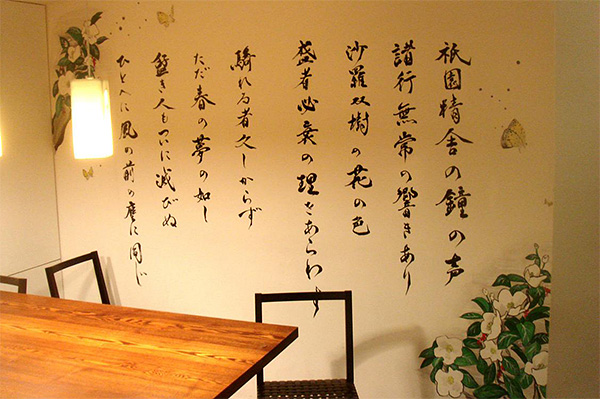 祇園精舎の鐘の声
諸行無常の響きあり
沙羅双樹の花の色
盛者必衰の理をあらわす
驕れる者久しからず
ただ春の夢の如し
盛き人もついに滅びぬ
ひとへに風の前の塵に同じ